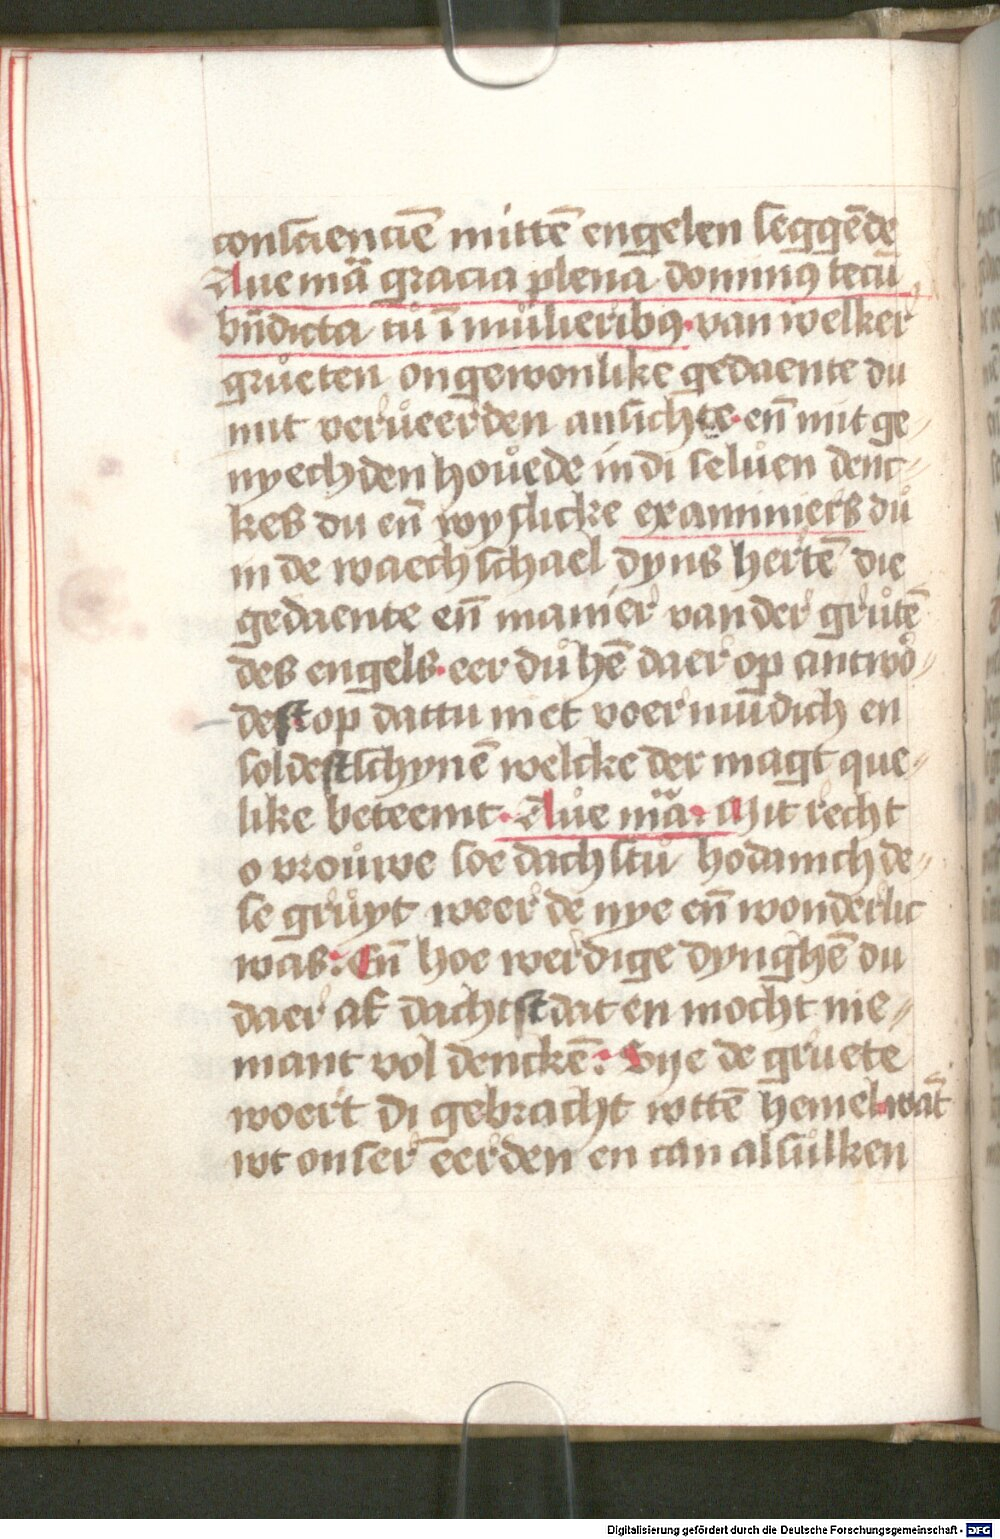 conscienciē mittē engelen seggēde
Aue mā gracia plena dominꝰ tecū
bn̄dicta tu ī mulieribꝰ· van welker
grueten ongewonlike gedaente du
mit verueerden ansichte· en̄ mit ge⸗
nyechden houede in di seluen denc⸗
kes du en̄ wyslicke examiniers du
in de waechschael dyns hertē die
gedaente en̄ manier van der grutē
des engels· eer du hē daer op antwo⸗
destop dattu niet voermūdich en
soldestschynē welcke der magt que⸗
like beteemt· Aue mā· Mit recht
o vrouwe soe dachstu hodanich de⸗
se gruyt weerde nye en̄ wonderlic
was: En̄ hoe werdige dynghē du
daer af dachtst dat en mocht nie⸗
mant vol denckē: Dye de gruete
woert di gebracht wttē hemel· wāt
wt onser eerden en can alsulken
Digitalisierung gefördert durch die Deutsche Forschungsgemeinschaft - DFG